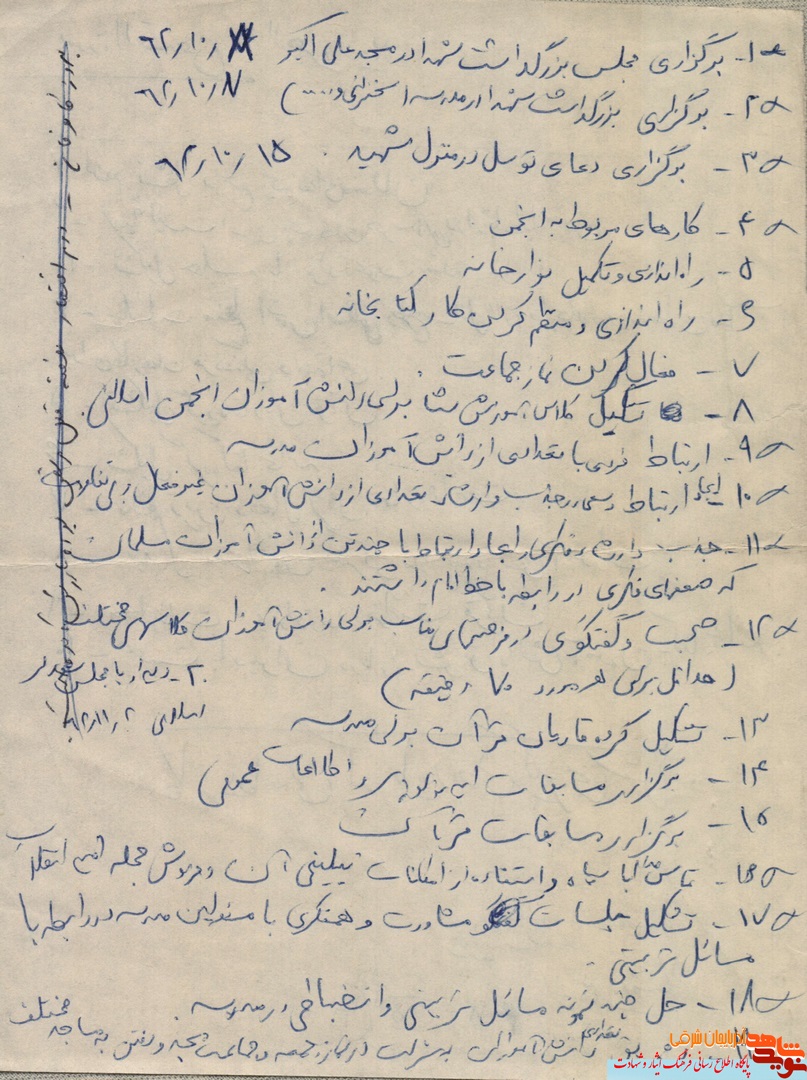 ۱- برگزاری مجلس بزرگداشت شهدا در مسجد علی اکبر ۶۲/۱۰/
۲- برگزاری بزرگداشت شهدا در مدرسه (سخنرانی و.....) ۶۲/۱۰/۸
۳- برگزاری دعای توسل در منزل شهید. ۶۲/۱۰/۱۵
۴- کارهای مربوط به انجمن.
۵- راه اندازی و تکمیل نوارخانه
۶- راه اندازی و منظم کردن کار کتابخانه
۷- فعال کردن نماز جماعت.
۸- تشکیل کلاس آموزش برای دانش آموزان انجمن اسلامی.
۹- ارتباط قوی با تعدادی از دانش آموزان مدرسه
۱۰- ایجاد ارتباط و سعی در جذب و ارشاد تعدادی از دانش آموزان غیرفعال و بی تفاوت
۱۱- جذب فکری و ایجاد ارتباط با چند تن از دانش آموزان مسلمان
که ضعفهای فکری در رابطه با خط امام داشتند.
۱۲- صحبت و گفتگوی در فرصتهای مناسب برای دانش آموزان کلاسهای مختلف
(حداقل برای هر مورد ۷۰ دقیقه)
۲- دیدار با مجلس
اسلامی ۶۲/۱۱/۲
۱۳- تشکیل گروه قاریان قرآن برای مدرسه
۱۴- برگزاری مسابقات ایدئولوژی و اطلاعات عمومی
۱۵- برگزاری مسابقات قرآن
۱۶- تماس با سپاه و استفاده از امکانات تبلیغی آن و فروش مجله امید انقلاب
۱۷- تشکیل جلسات مشاورت و همفکری با مسئولین مدرسه در رابطه با
مسائل تربیتی.
۱۸- حل چند نمونه مسائل تربیتی و انضباطی در مدرسه.
تعدادی دانش آموزان به شرکت در نماز جمعه و جماعت و رفتن به مساجد مختلف
نوید شاهد
آذربایجان شرقی
پایگاه اطلاع رسانی فرهنگ ایثار و شهادت